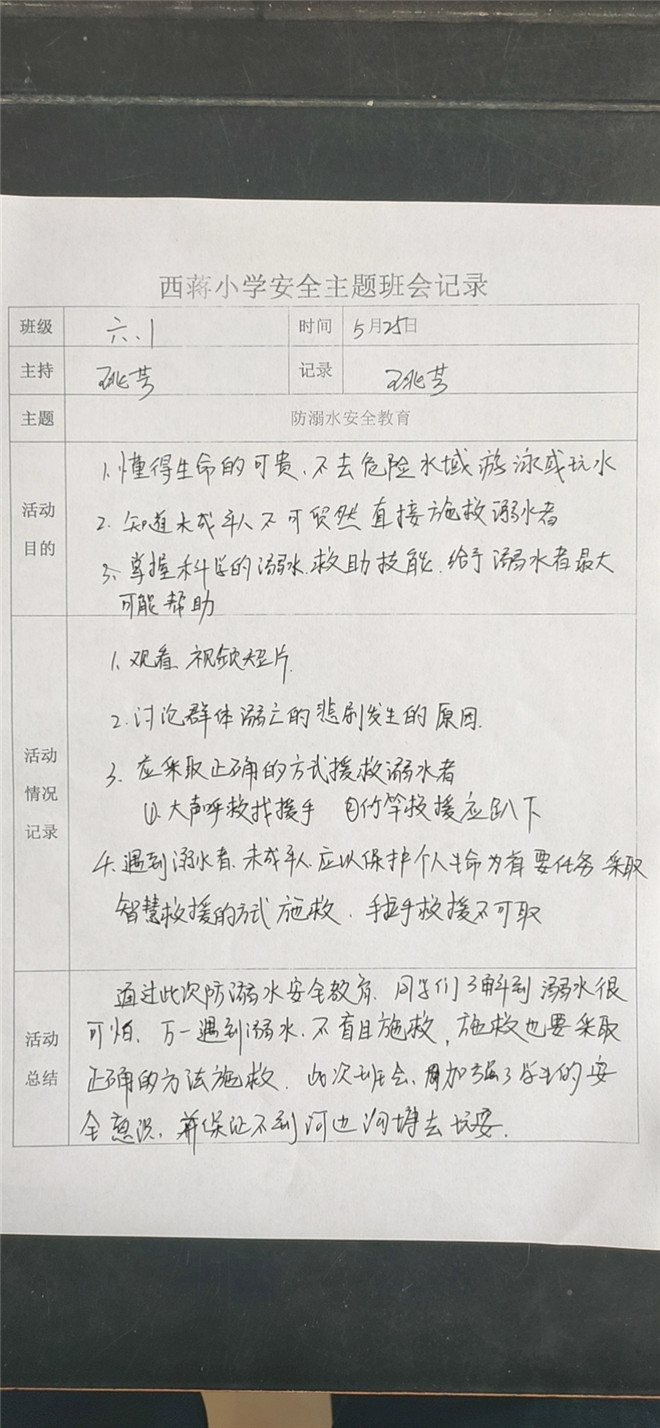 西蒋小学安全主题班会记录
班级 六.1 时间 5月25日
主持 记录
主题 防溺水安全教育
活动目的
1.懂得生命的可贵、不去危险水域游泳或玩水
2.知道未成年人不可贸然直接施救溺水者
3.掌握科学的溺水救助技能.给予溺水者最大
可能帮助
活动情况记录
1.观看视频短片.
2.讨论群体溺亡的悲剧发生的原因.
3.应采取正确的方式援救溺水者
①.大声呼救找援手 ②竹竿救援应趴下
4.遇到溺水者.未成年人应以保护个人生命为首要任务 采取
智慧救援的方式施救.手拉手救援不可取
活动总结
通过此次防溺水安全教育.同学们了解到溺水很
可怕.万一遇到溺水.不盲目施救,施救也要采取
正确的方法施救.此次班会,加强了学生的安
全意识,并保证不到河边沟塘去玩耍.